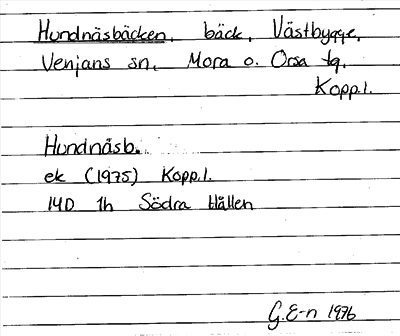 Hundnäsbäcken, bäck, Västbygge,
Venjans sn, Mora o. Orsa tg.
Kopp.l.
Hundnäsb.
ek (1975) Kopp.l.
14D 1h Södra Hållen
G.E-n 1976